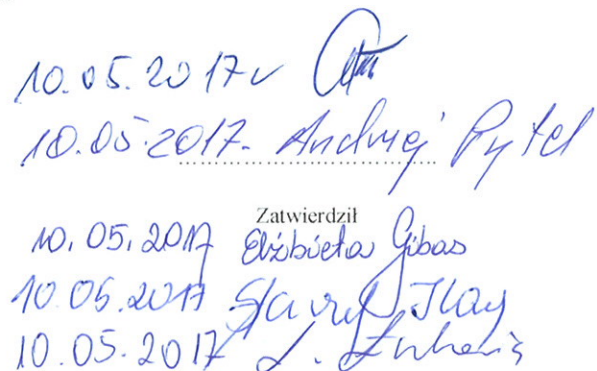 10.05.2017r
10.05.2017. Andrzej Pytel
Zatwierdził
10.05.2017 Elżbieta Gibas
10.05.2017
10.05.2017 L.